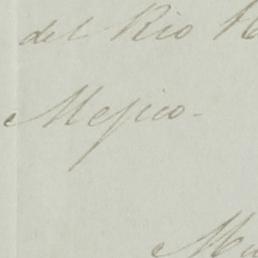 del Rio
Mejico.